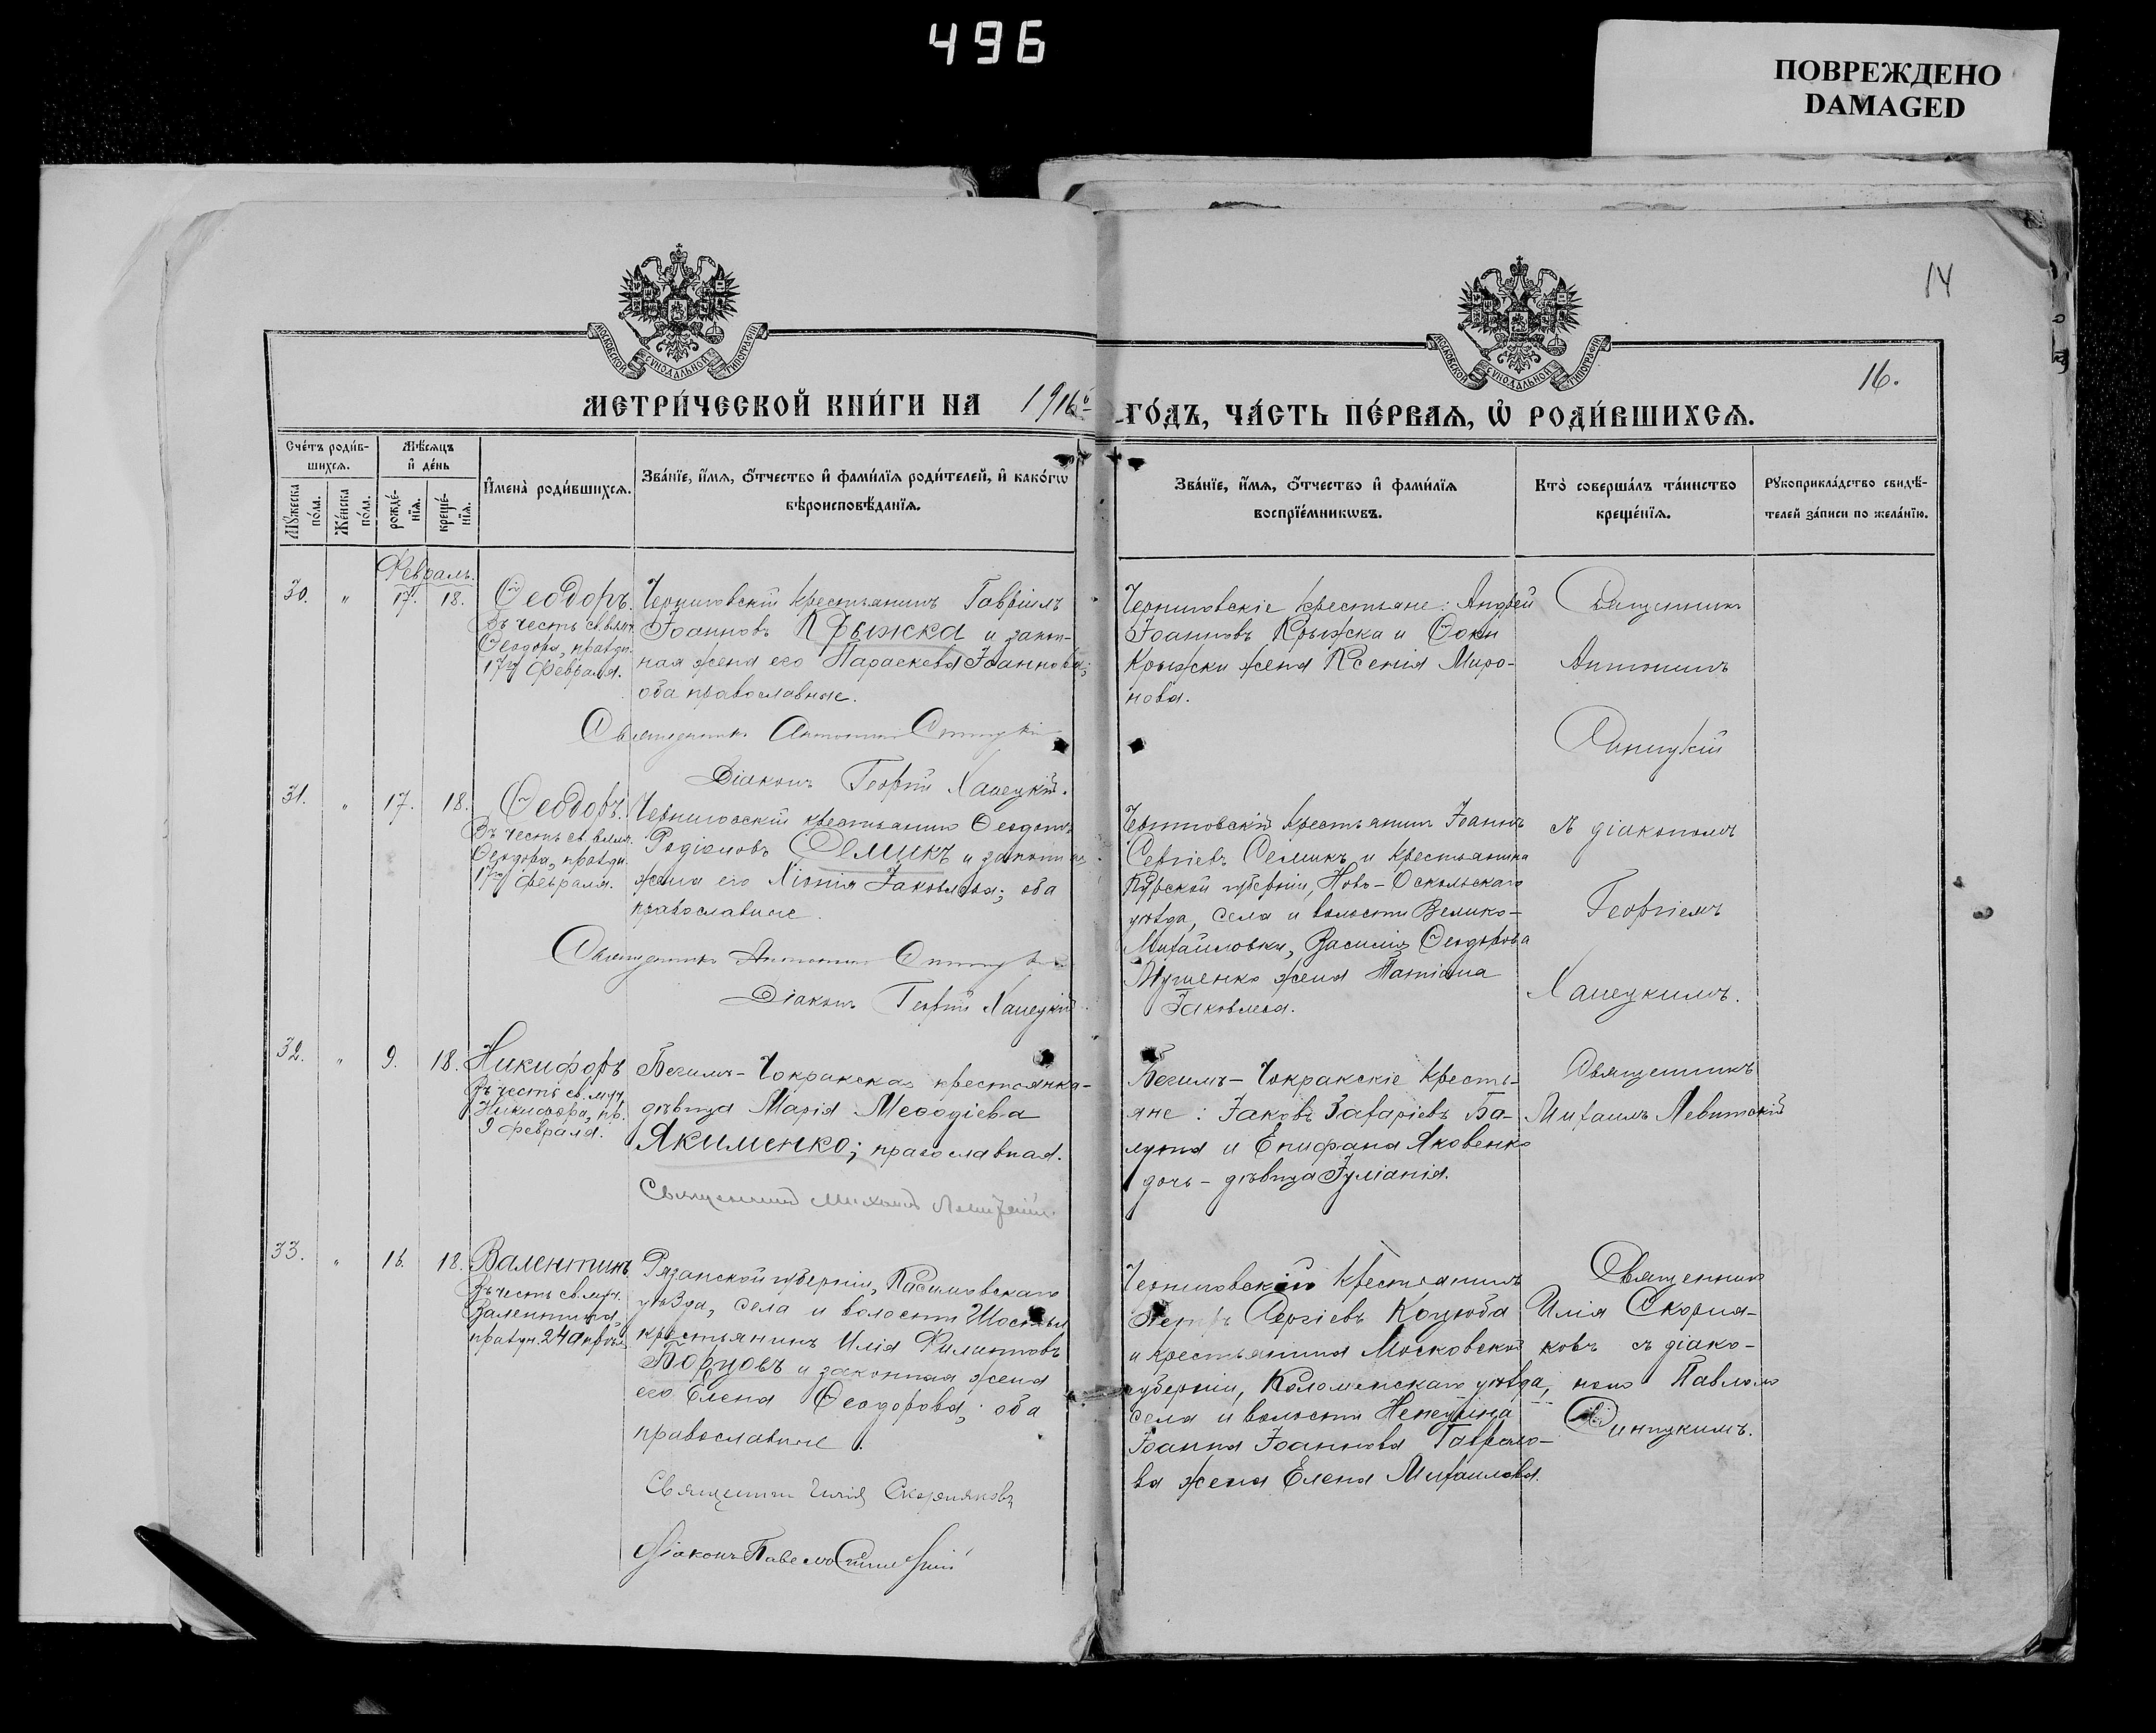 496
ПОВРЕЖДЕНО
DAMAGED
14
16.
МОСКОВСКОЙ СѴНОДАЛЬНОЙ ТИПОГРАФІИ
МОСКОВСКОЙ СѴНОДАЛЬНОЙ ТИПОГРАФІИ
МЕТРИ́ЧЕСКОЙ КНИ́ГИ НА 1916й
ГО́ДЪ, ЧА́СТЬ ПЕ́РВАЯ, Ѡ РОДИ́ВШИХСЯ.
Сче́тъ роди́в-
шихся.
Мꙋжеска по́ла.
Же́нска по́ла.
Мѣ́сяцъ
и҆ де́нь
рожде́-
нїя.
креще́-
нїя.
И҆мена̀ роди́вшихся.
Зва́нїе, и҆́мя, ѻ҆́тчество и҆ фами́лїя роди́телей, и҆ како́гѡ
вѣроисповѣ́данїя.
Зва́нїе, и҆́мя, ѻ҆́тчество и҆ фами́лїя
воспрїе́мникѡвъ.
Кто̀ соверша́лъ та́инство
креще́нїя.
Рꙋкоприкла́дство свидѣ́-
телей за́писи по жела́нїю.
Февраль.
30. " 17. 18. Ѳеодоръ.
Въ честь св. влмч.
Ѳеодора, праздн.
17го февраля.
Черниговскій крестьянинъ Гавріилъ
Іоанновъ Крыжка и закон-
ная жена его Параскева Іоаннова;
оба православные.
Священникъ Антонинъ
Діаконъ Георгій Ханецкій.
Черниговскіе крестьяне: Андрей
Іоанновъ Крыжка и Ѳомы
Крыжки жена Ксенія Миро-
нова.
Священникъ
Антонинъ
31. " 17. 18. Ѳеодоръ.
Въ честь св. влмч.
Ѳеодора, праздн.
17го февраля.
Черниговскій крестьянинъ Ѳеодотъ
Родіоновъ Семикъ и законная
жена его Хіонія Іаковлева; оба
православные.
Священникъ Антонинъ
Діаконъ Георгій Ханецкій.
Черниговскій крестьянинъ Іоаннъ
Сергіевъ Семикъ и крестьянина
Курской губерніи, Ново-Оскольскаго
уѣзда, села и волости Велико-
Михайловки, Василія Ѳеодорова
жена Татіана
Іаковлева.
съ діакономъ
Георгіемъ
Ханецкимъ.
32. " 9. 18. Никифоръ
Въ честь св. муч.
Никифора, пр.
9 февраля.
Бегимъ-Чокракская крестьянка-
дѣвица Марія Меѳодіева
Якименко; православная.
Священникъ Михаилъ Левитскій
Бегимъ-Чокракскіе кресть-
яне: Іаковъ Захаріевъ Ба-
и Епифана Яковенко
дочь-дѣвица Іуліанія.
Священникъ
Михаилъ Левитскій
33. " 16. 18. Валентинъ
Въ честь св. муч.
Валентина,
празд. 24 апрѣля
Рязанской губерніи, Касимовскаго
уѣзда, села и волости Шостья
крестьянинъ Илія Филипповъ
Борцовъ и законная жена
его Елена Ѳеодорова; оба
православные.
Священникъ Илія Скорняковъ
Діаконъ Павелъ Синицкій
Черниговскій крестьянинъ
Петръ Сергіевъ Коцюба
и крестьянина Московской
губерніи, Коломенскаго уѣзда,
села и волости Непецина
Іоанна Іоаннова Гаврило-
ва жена Елена Михаилова.
Священникъ
Илія Скорня-
ковъ съ діако-
номъ Павломъ
Синицкимъ.